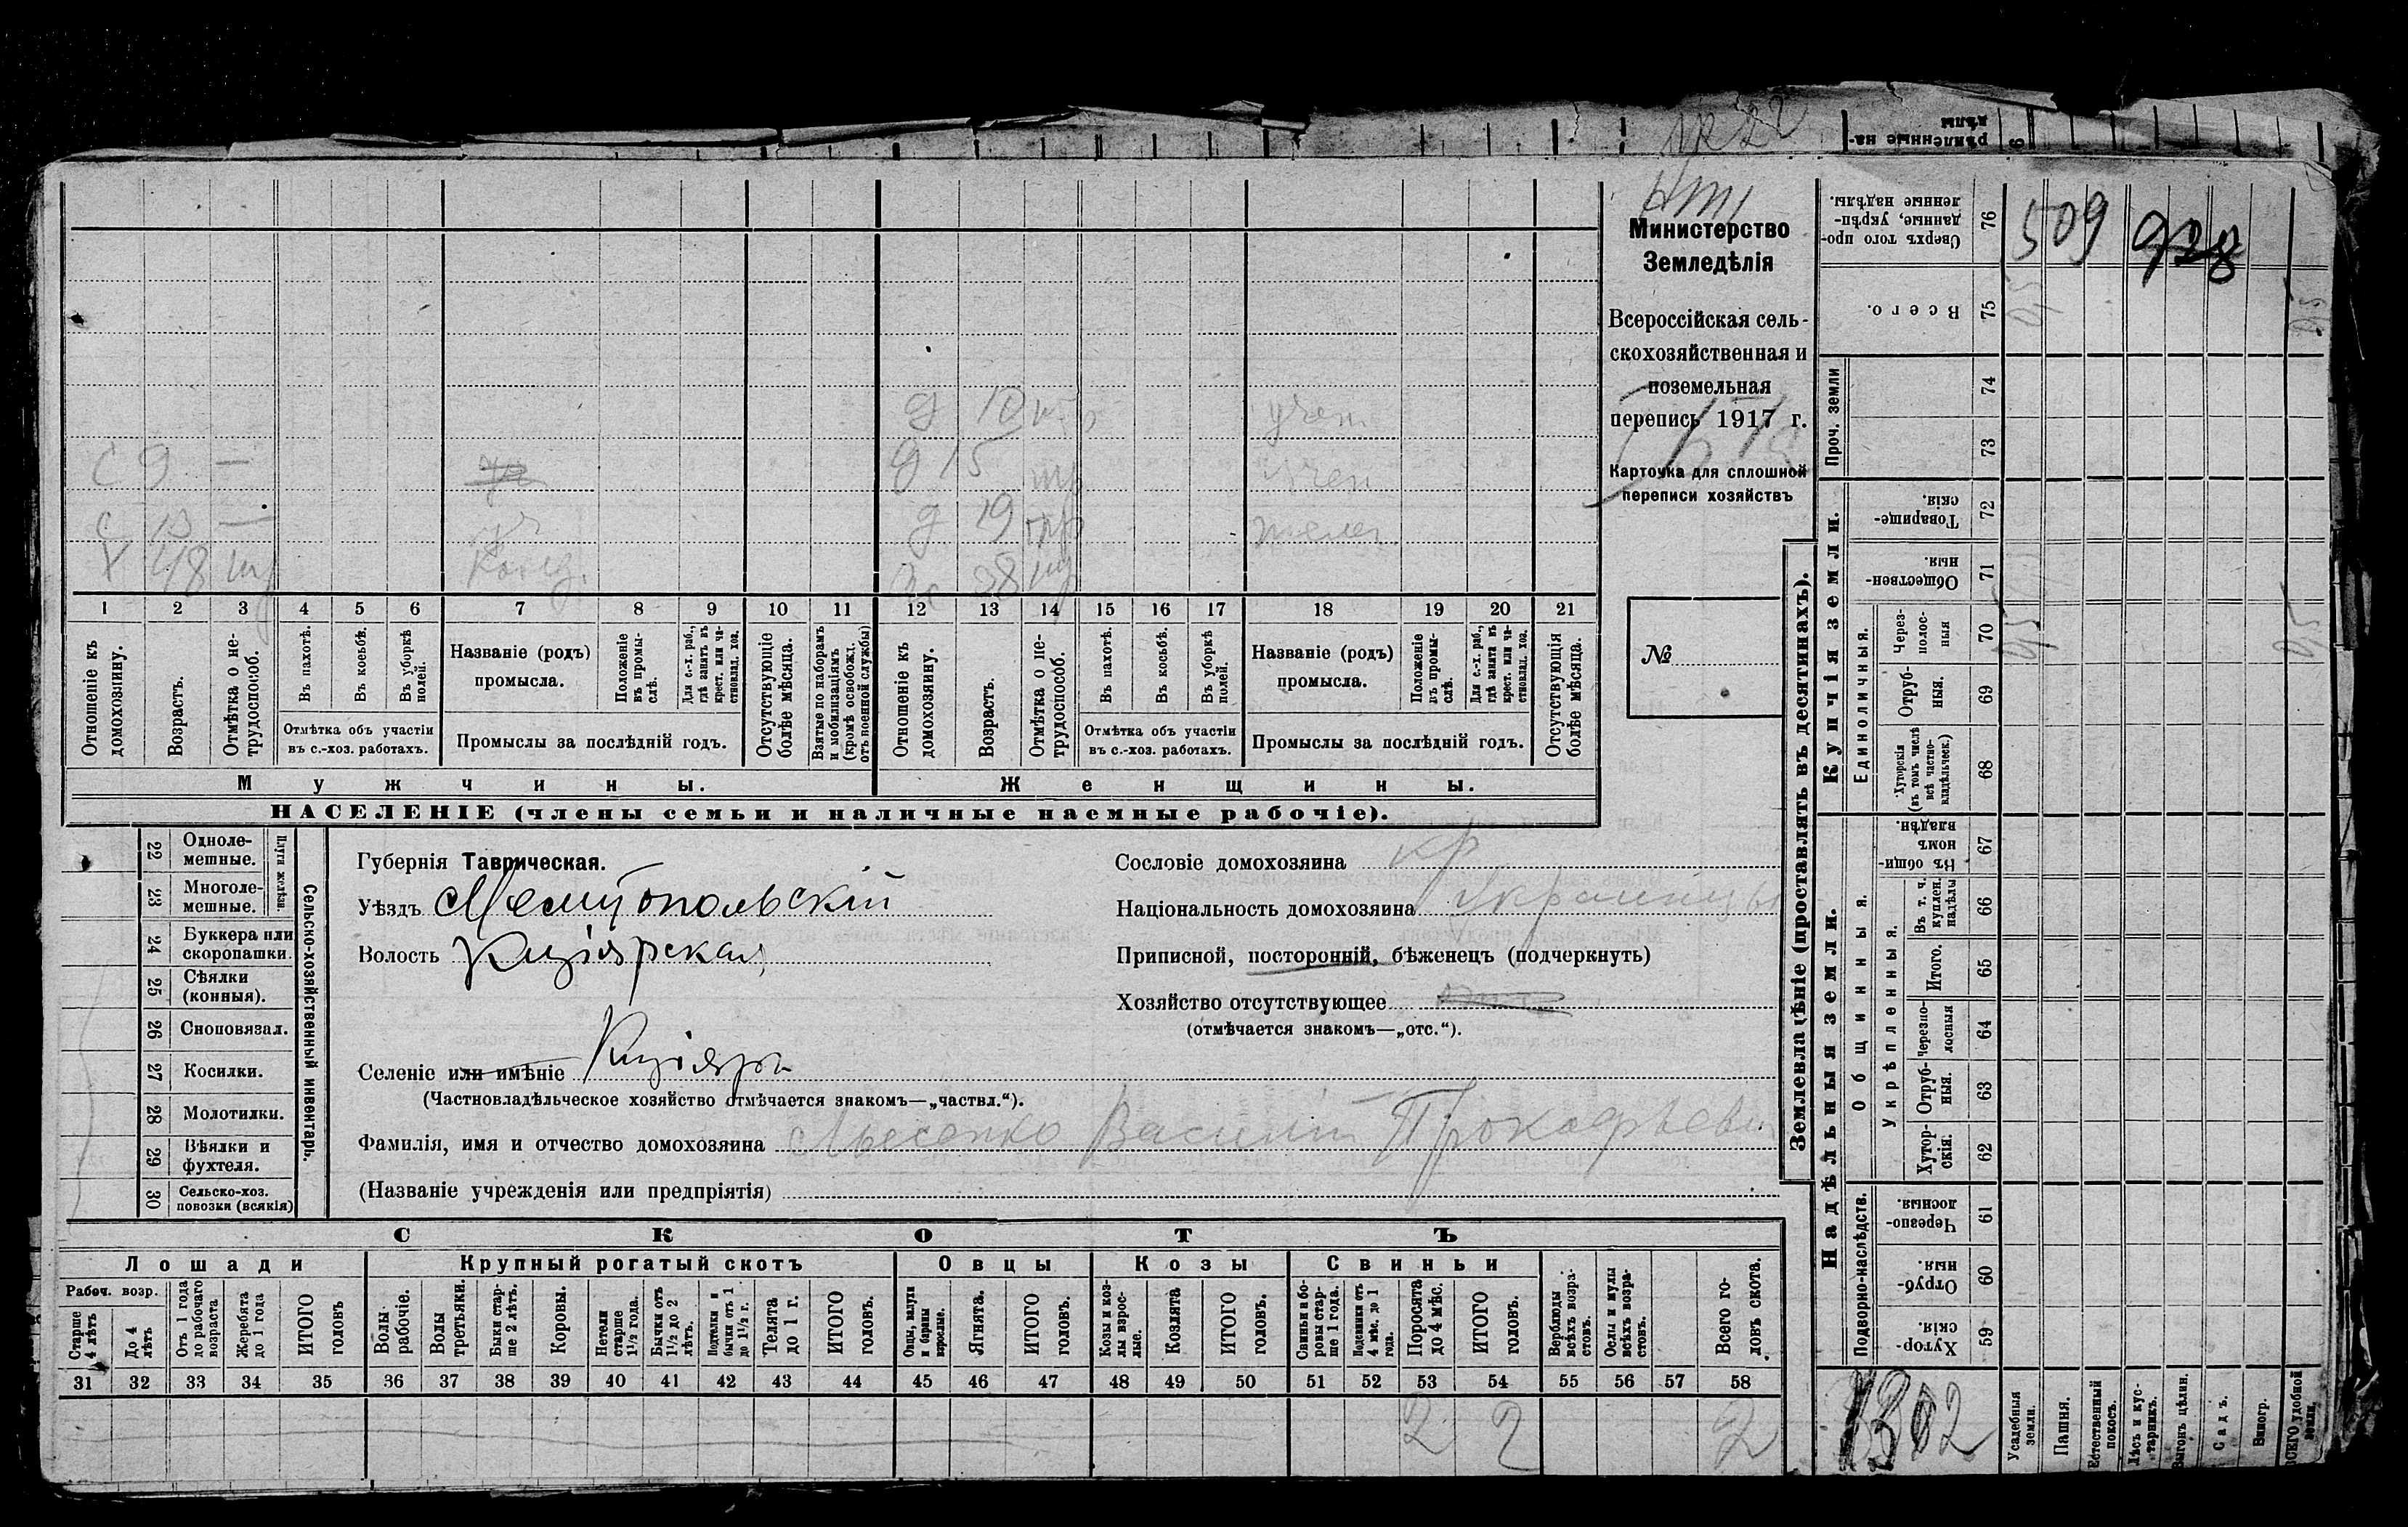 509 928
Министерство
Земледѣлія
Всероссійская сель-
скохозяйственная и
поземельная
перепись 1917 г.
Карточка для сплошной
переписи хозяйствъ
№
д 10
учен
С 9 —
д 15
учен
С —
уч
д 19
Х 48
38
1 2 3 4 5 6 7 8 9 10 11 12 13 14 15 16 17 18 19 20 21
Отношеніе къ домохозяину.
Возрастъ.
Отмѣтка о не-трудоспособ.
Въ пахотѣ.
Въ косьбѣ.
Въ уборкѣ полей.
Отмѣтка объ участіи
въ с.-хоз. работахъ.
Названіе (родъ)
промысла.
Положеніе въ промы-слѣ.
Для с.-х. раб., гдѣ занятъ въ крест. или ча-стновлад. хоз.
Промыслы за послѣдній годъ.
Отсутствующіе болѣе мѣсяца.
Взятые по наборамъ и мобилизаціямъ (кромѣ освобожд. отъ военной службы)
Отношеніе къ домохозяину.
Возрастъ.
Отмѣтка о не-трудоспособ.
Въ пахотѣ.
Въ косьбѣ.
Въ уборкѣ полей.
Отмѣтка объ участіи
въ с.-хоз. работахъ.
Названіе (родъ)
промысла.
Положеніе въ промы-слѣ.
Для с.-х. раб., гдѣ занята въ крест. или ча-стновлад. хоз.
Промыслы за послѣдній годъ.
Отсутствующія болѣе мѣсяца.
Мужчины.
Женщины.
НАСЕЛЕНІЕ (члены семьи и наличные наемные рабочіе).
Сельско-хозяйственный инвентарь.
Плуги желѣзн.
22 Одноле-мешные.
23 Многоле-мешные.
24 Буккера или скоропашки.
25 Сѣялки (конныя).
26 Сноповязал.
27 Косилки.
28 Молотилки.
29 Вѣялки и фухтеля.
30 Сельско-хоз. повозки (всякія)
Губернія Таврическая.
Уѣздъ Мелитопольскій
Волость Кизіярская
Селеніе или имѣніе Кизіяръ
(Частновладѣльческое хозяйство отмѣчается знакомъ—„частвл.“).
Сословіе домохозяина кр
Національность домохозяина Украинцы
Приписной, посторонній, бѣженецъ (подчеркнуть)
Хозяйство отсутствующее
(отмѣчается знакомъ—„отс.“).
Фамилія, имя и отчество домохозяина Лысенко Василій Прокофьевич
(Названіе учрежденія или предпріятія)
СКОТЪ
Лошади
Крупный рогатый скотъ
Овцы
Козы
Свиньи
Рабоч. возр.
Старше 4 лѣтъ
До 4 лѣтъ
Отъ 1 года до рабочаго возраста
Жеребята до 1 года
ИТОГО головъ
Волы рабочіе.
Волы третьяки.
Быки стар-ше 2 лѣтъ.
Коровы.
Нетели старше 1½ года.
Бычки отъ 1½ до 2 лѣтъ.
Подтелки и бычки отъ 1 до 1½ г.
Телята до 1 г.
ИТОГО головъ.
Овцы, валухи и бараны взрослые.
Ягнята.
ИТОГО головъ.
Козы и коз-лы взрос-лые.
Козлята
ИТОГО головъ.
Свиньи и бо-ровы стар-ше 1 года.
Подсвинки отъ 4 мѣс. до 1 года.
Поросята до 4 мѣс.
ИТОГО головъ.
Верблюды всѣхъ возра-стовъ.
Ослы и мулы всѣхъ возра-стовъ.
Всего го-ловъ скота.
31 32 33 34 35 36 37 38 39 40 41 42 43 44 45 46 47 48 49 50 51 52 53 54 55 56 57 58
2 2 2
Землевладѣніе (проставлять въ десятинахъ).
Надѣльныя земли.
Купчія земли.
Проч. земли
Сверхъ того про-данные, укрѣп-ленные надѣлы. 76
Всего. 75
74
73
Товарище-скія. 72
Обществен-ныя. 71
Единоличныя.
Через-полос-ныя 70
Отруб-ныя. 69
Хуторскія (въ томъ числѣ всѣ частно-владѣльческ.) 68
Общинныя.
Въ общин-номъ владѣн. 67
Укрѣпленныя.
Въ т. ч. куплен. надѣлы 66
Итого. 65
Черезпо-лосныя 64
Отруб-ныя. 63
Хутор-скія. 62
Подворно-наслѣдств.
Черезпо-лосныя 61
Отруб-ныя. 60
Хутор-скія. 59
Усадебныя земли.
Пашня.
Естественный покосъ.
Лѣсъ и кус-тарникъ.
Выгонъ цѣлин.
Садъ.
Виногр.
ВСЕГО удобной земли.